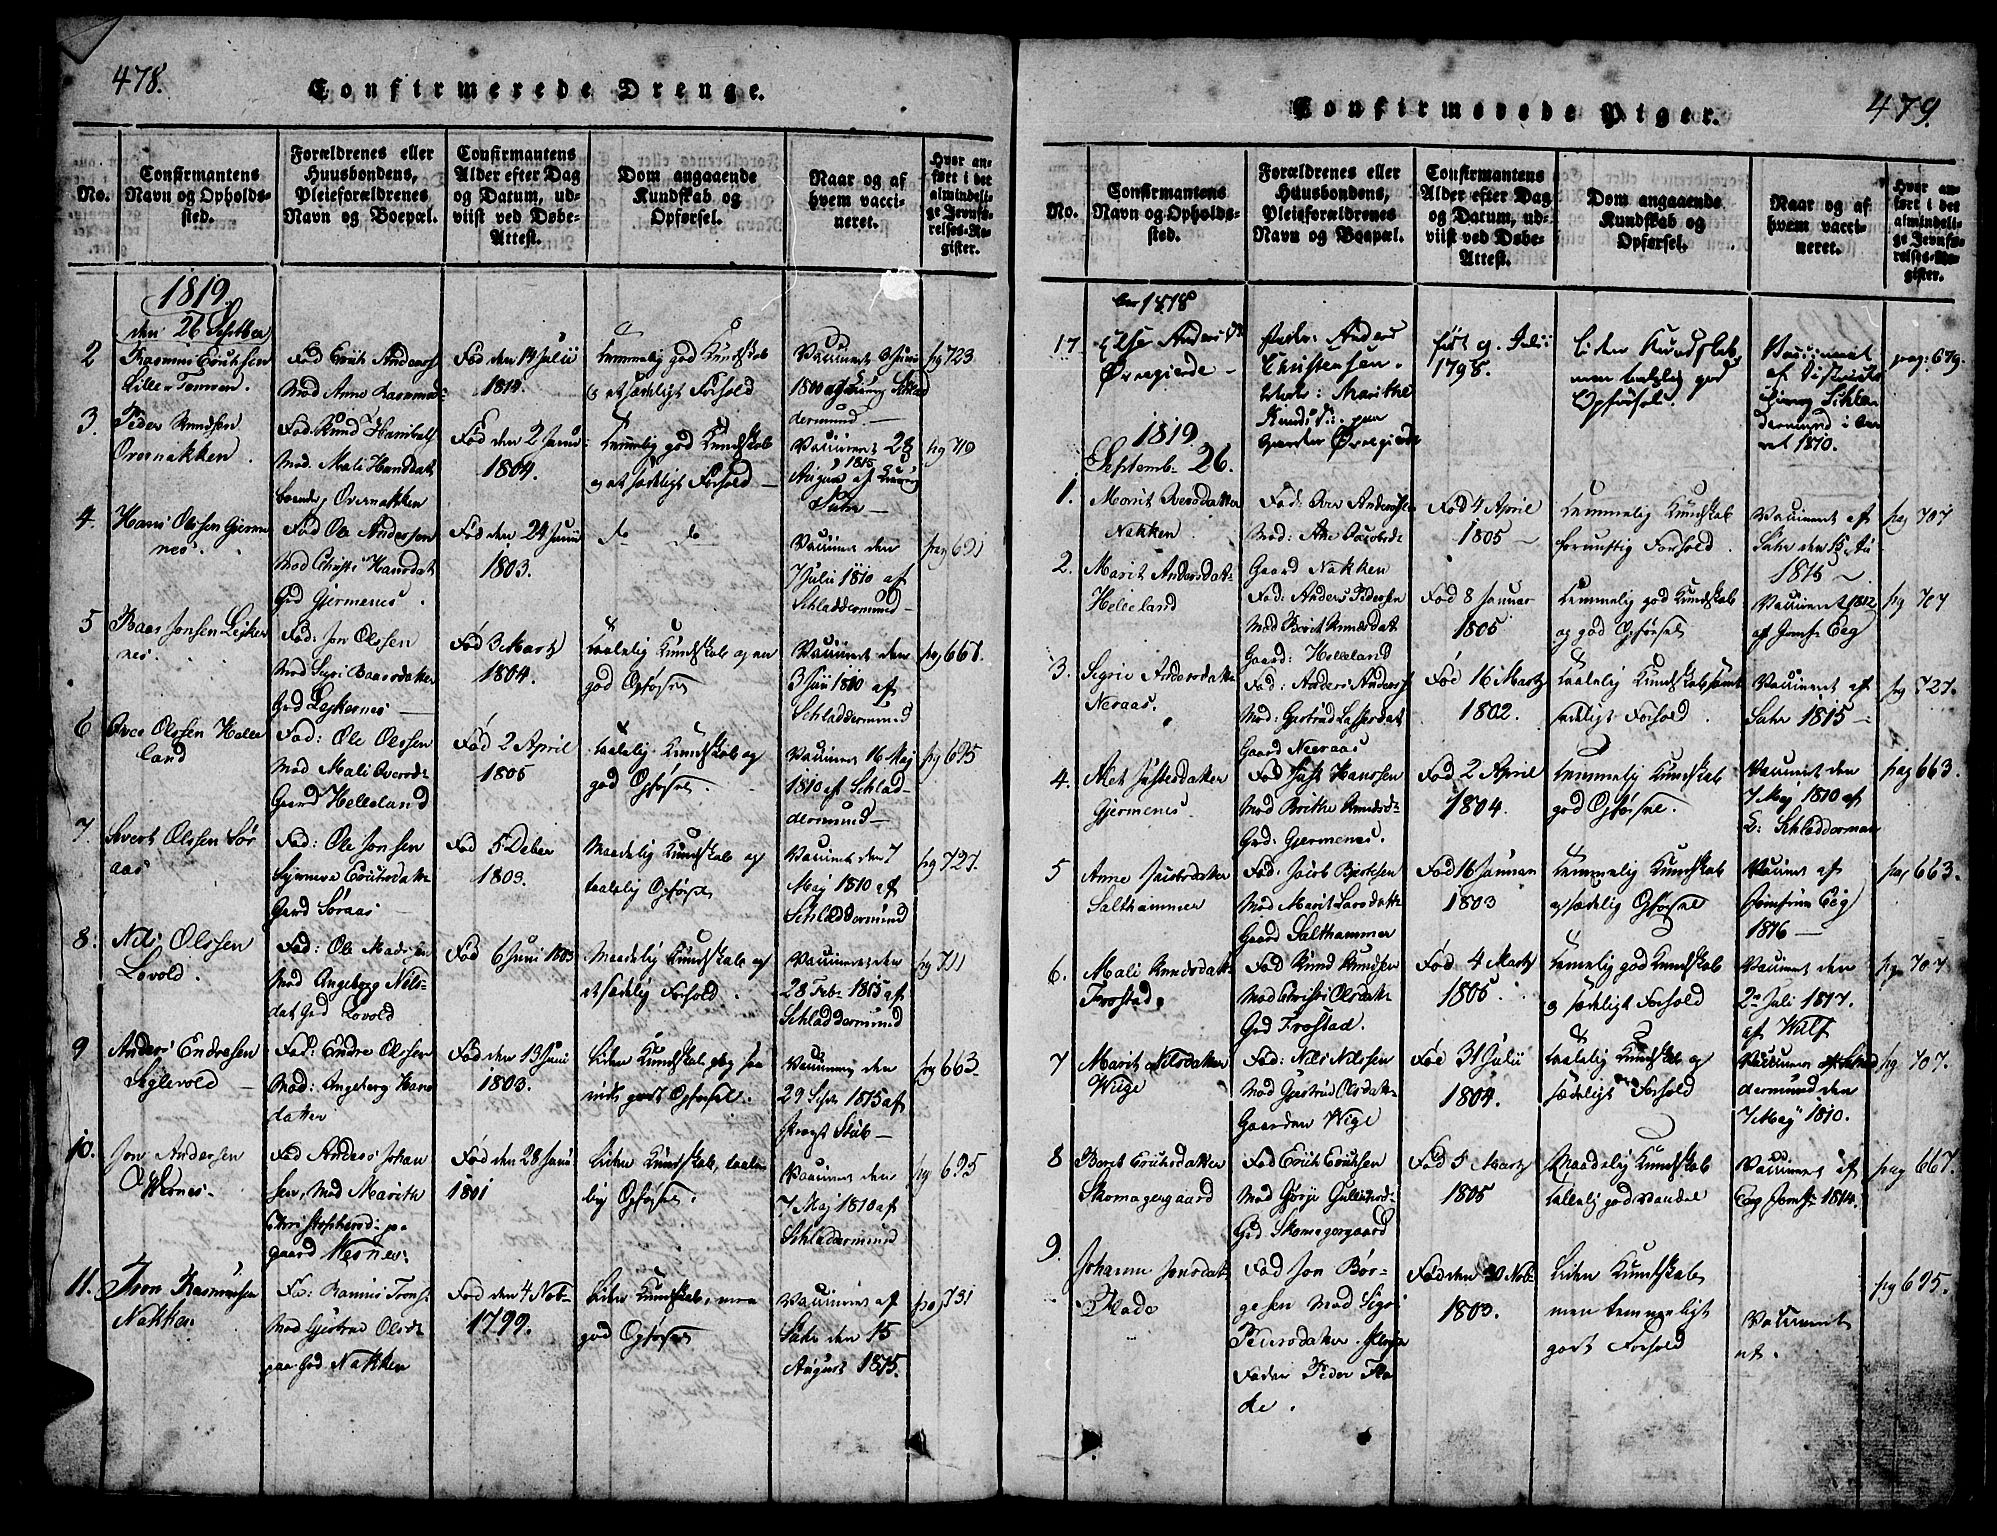 478.
Confirmerede Drenge.
No.
Confirmantens
Navn og Opholds-
sted.
Forældrenes eller
Huusbondens,
Pleieforældrenes
Navn og Boepæl.
Confirmantens
Alder efter Dag
og Datum, ud-
viist ved Døbe-
Attest.
Dom angaaende
Kundskab og
Opførsel.
Naar og af
hvem vacci-
neret.
Hvor an-
ført i det
almindeli-
ge Jevnfø-
relses-Re-
gister.
1819
den 26 Septber
2
Rasmus Erichsen
Lille Tomren.
Fad Erich Anderss
Mod Anne Rasmus
Fød den 14 Julii
1804
temmelig god Kundskab
og et sædeligt Forhold
pag 723
3.
Peder Knudsen
Overnakken.
Fad. Knud Hanibals
Mod. Mali Hansdatt
boende Overnakken
Fød den 2 Junii
1804.
temmelig god Kundskab
og et sædeligt Forhold
Vaccineret 28
August 1815 af
Sahr
4.
Hans Olssen Gjerme
nes.
Fad Ole Andersen
Mod Christi Hansdat
Grd Gjermenes.
Fød den 24 Junii
1803.
do do
Vaccineret den
7 Julii 1810 af
Schladdermund
pag 691
5
Baar Jonsen Lejker
nes.
Fad: Jon Olssen
Mod Sigri Baarsdatter
Grd Lejkernes
Fød 3 Martz
1804.
taalelig Kundskab og en
god Opførsel
Vaccineret den
3 Juii 1810 af
Schladdermund
6
Over Olssen Helle
land
Fad: Ole Olssen
Mod Mali Oversd:
Gaard Helleland
Fød 2 April
1805
taalelig Kundskab og
god Opførsel.
Vaccineret 16 Maj
1810 af Schlad-
dermund
pag 695
7.
Sivert Olssen Sør
aas
Fad: Ole Jonsen
Signeve Erichsdatter
Gard Søraas
Fød 5 Deber
1803.
Maadelig Kundskab og
taalelig Opførsel
Vaccineret den 7
Maj 1810 af
Schladdermund
pag 727.
8.
Nils Olssen
Lovold.
Fad: Ole Madssen
Mod Angeborg Nils-
dat Grd Lovold
Fød 6 Juni 1803
Maadelig Kundskab og
et sædelig Forhold.
Vaccineret den
28 Febr 1815 af
Schladdermund
pag 711
9
Anders Endresen
Siglevold
Fad: Endre Olssen
Mod: Angeborg Hans
datter
Fød den 13 Juni
1803.
Liden Kundskab, dog saa
vidt godt Opførsel.
Vaccineret den
29 Septr 1815 af
Provst Stub
pag 663.
10.
Jon Andersen
Wernes.
Fad Anders Johan
sen, Mod Marith
Christophersd: paa
gaard Nesnes.
Fød den 28 Juni
1801
Liden Kundskab, taale
lig Opførsel.
Vaccineret den
7 Maj 1810 af
Schladdermund
pag 695
11.
Iven Rasmussen
Nakken.
Fa: Rasmus Iverss.
Mod Gjertrud Olsdt
paa Grd Nakken
Fød den 4 Nob-
1799.
Liden Kundskab, men
god Opførsel
Vaccineret af
Sahr den 15
August 1815.
pag 731
479.
Confirmerede Piger.
No.
Confirmantens
Navn og Opholds-
sted.
Forældrenes eller
Huusbondens,
Pleieforældrenes
Navn og Boepæl.
Confirmantens
Alder efter Dag
og Datum, ud-
viist ved Døbe-
Attest.
Dom angaaende
Kundskab og
Opførsel.
Naar og af
hvem vacci-
neret.
Hvor an-
ført i det
almindeli-
ge Jevnfø-
relses-Re-
gister.
1818
17
Else Anders Dr
Øvregierde
Fader: Anders
Christensen.
Moder: Marithe
Knuds D: paa
gaarden Øvregierde
født 9. Julii
1798.
Liden Kundskab
men temmelig god
Opførsel.
Vaccineret
af Districts
Schlad
dermund i Aa
ret 1810.
pag: 679.
1819.
Septemb. 26.
1.
Marit Oversdatter
Nakken.
Fad: Over Andersen
Mod: Ane Jacobsd:
Gaard Nakken
Fød 4 April
1805
temmelig Kundskab
fornuftig Forhold.
Vaccineret af
Sahr den 15 Au
1815
pag 707
2.
Marit Andersdatt:
Helleland
Fad: Anders Pedersen
Mod Berit Knudsdat
Gaard: Helleland
Fød 8 Januar
1805
temmelig god Kundskab
og god Opførsel
Vaccineret 1812
af Jomfr Eeg
pag 707
3.
Sigrie Andersdatt
Neraas.
Fad: Anders Anders
Mod: Gjertrud Lassesdat
Gaard Neeraas
Fød 16 Martz
1802.
taalelig Kundskab samt
sædeligt Forhold.
Vaccineret af
Sahr 1815
pag 727.
4.
Anet Justesdatter
Gjermenes.
Fad Just Hanssen
Mod Berithe Knudsd:
Grd: Gjermenes.
Fød 2 April
1804.
temmelig Kundskab
god Opførsel.
Vaccineret den
7 Maj 1810 af
D: Schladdermun
pag 663.
5
Anne Jacobsdatter
Salthammer
Fad. Jacob Bertelsen
Mod Marit Larsdatter
Gaard Salthammer
Fød 16 Januari
1803
temmelig Kundskab
og sædelig Opførsel
Vaccineret af
Jomfrue Eeg
1816
pag 663.
6.
Mali Knudsdatt:
Frostad.
Fad Knud Knudsen
Mod Christi Olsdat
Grd Frostad.
Fød 4 Martz
1805.
temmelig god Kundskab
og sædeligt Forhold
Vaccineret den
2n Juli 1817.
af Wulf
pag 707
7
Marit Nilsdatter
Wiige
Fad: Nils Nilssen
Mod Gjertrud Olsdatt
Gaarden Wige
Fød 31 Julii
1804.
taalelig Kundskab og
sædeligt Forhold
Vaccineret af Schlad
dermund den
7 Maj 1810.
pag. 707.
8
Berit Erichsdatter
Skomagergaard
Fad Erich Erichsen
Mod Gørje Gulliksd:
Grd Skomagergaard
Fød 5 Martz
1805
Maadelig Kundskab
taalelig god Vandel
Vaccineret af
Eeg Jomfr 1814
pag 667.
9.
Johanne Jonsdatt
Flade
Fad Jon Bør-
gesen Mod Sigri
Pedersdatter. Pleje
Fader Peder Fla
de.
Fød den 30 Nob-
1803.
Liden Kundskab
men temmeligt
godt Forhold
Vaccineret
et.
pag 695.